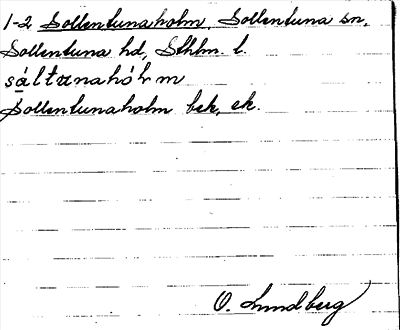 1-2 Sollentunaholm, Sollentuna sn,
Sollentuna hd, Sthlm. l.
sáltunahòlm
Sollentunaholm bek, ek.
O. Lundberg